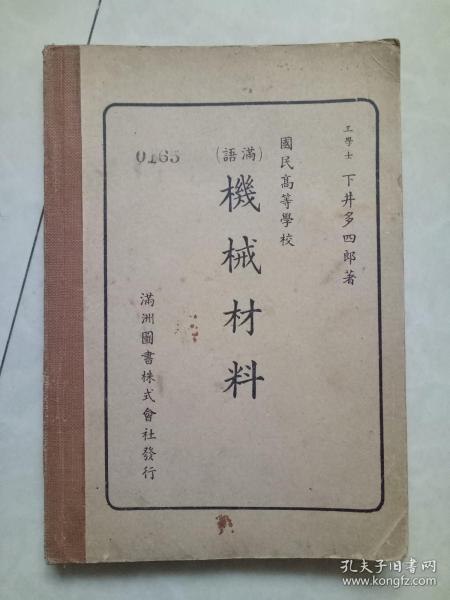 工學士 下井多四郎著
國民高等學校
(滿語)
機械材料
0165
滿洲圖書株式會社發行
孔夫子旧书网
www.kongfz.com